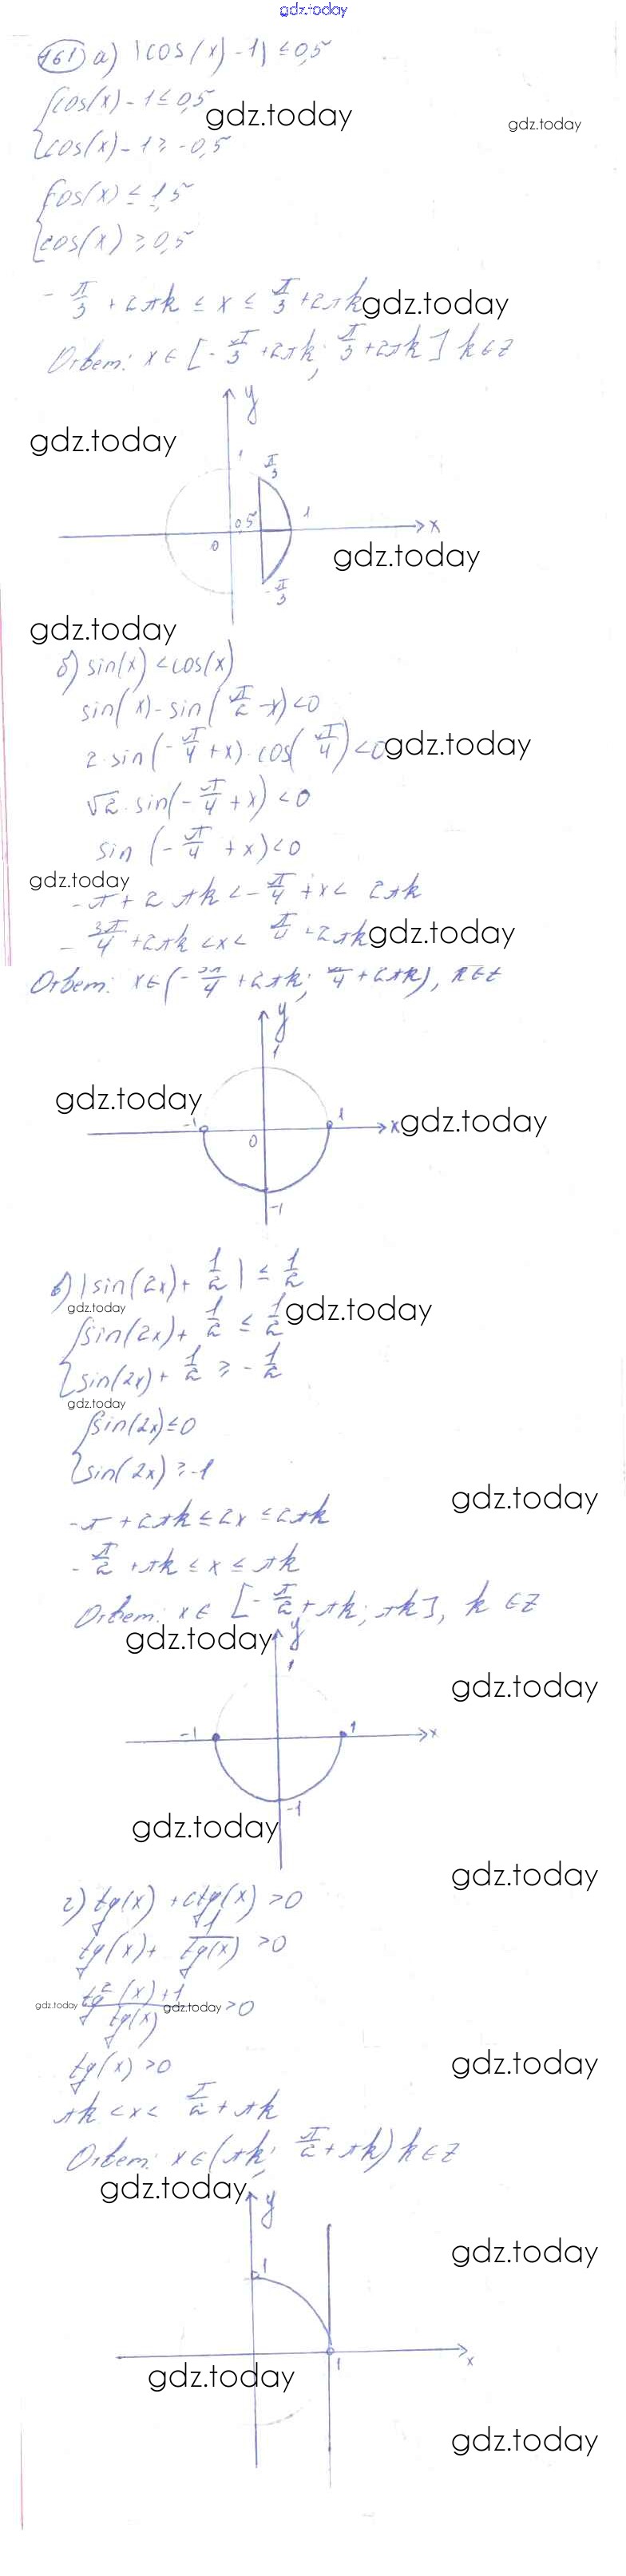 gdz.today
161 а) |cos(x) - 1| ≤ 0,5
cos(x) - 1 ≤ 0,5
gdz.today
gdz.today
cos(x) - 1 ≥ -0,5
cos(x) ≤ 1,5
cos(x) ≥ 0,5
- π/3 + 2πk ≤ x ≤ π/3 + 2πk
gdz.today
Ответ: x ∈ [- π/3 + 2πk; π/3 + 2πk] k ∈ Z
y
gdz.today
1
π/3
0,5
1
x
0
gdz.today
- π/3
gdz.today
б) sin(x) < cos(x)
sin(x) - sin(π/2 - x) < 0
2·sin(- π/4 + x)·cos(π/4) < 0
gdz.today
√2·sin(- π/4 + x) < 0
sin(- π/4 + x) < 0
gdz.today
-π + 2πk < - π/4 + x < 2πk
- 3π/4 + 2πk < x < π/4 + 2πk
gdz.today
Ответ: x ∈ (- 3π/4 + 2πk; π/4 + 2πk), k ∈ Z
y
1
gdz.today
-1
1
x
gdz.today
0
-1
в) |sin(2x) + 1/2| ≤ 1/2
gdz.today
sin(2x) + 1/2 ≤ 1/2
gdz.today
sin(2x) + 1/2 ≥ - 1/2
gdz.today
sin(2x) ≤ 0
sin(2x) ≥ -1
gdz.today
-π + 2πk ≤ 2x ≤ 2πk
- π/2 + πk ≤ x ≤ πk
Ответ: x ∈ [- π/2 + πk; πk], k ∈ Z
gdz.today
y
1
gdz.today
-1
1
x
-1
gdz.today
gdz.today
г) tg(x) + ctg(x) > 0
tg(x) + 1/tg(x) > 0
gdz.today
tg²(x) + 1 / tg(x) > 0
gdz.today
tg(x) > 0
gdz.today
πk < x < π/2 + πk
Ответ: x ∈ (πk; π/2 + πk) k ∈ Z
gdz.today
y
gdz.today
1
1
x
gdz.today
gdz.today